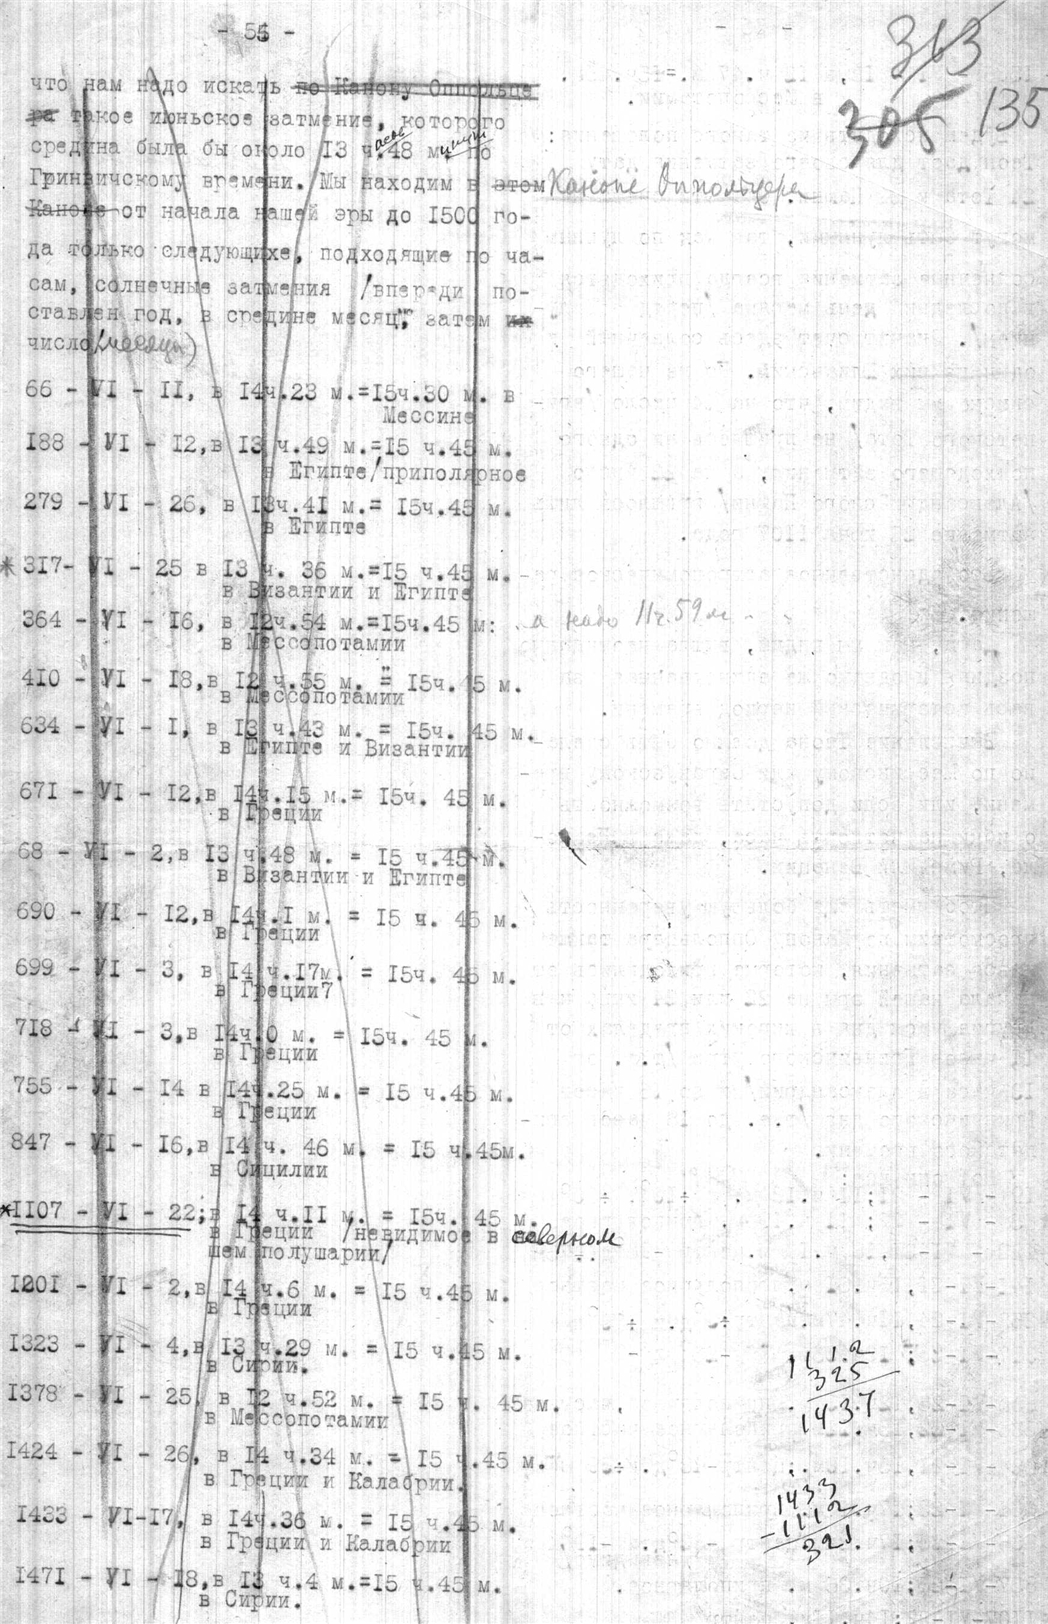 - 55 -
313
305 135
что нам надо искать по Канону Оппольце
ра такое июньское затмение, которого
средина была бы около I3 ч.48 м. по
Гринвичскому времени. Мы находим в этом Каноне Оппольцера
Каноне от начала нашей эры до I500 го-
да только следующихе, подходящие по ча-
сам, солнечные затмения /впереди по-
ставлен год, в средине месяц, затем их
число/месяца)
66 - УI - II, в I4ч.23 м.=I5ч.30 м. в
Мессине
I88 - УI - I2,в I3 ч.49 м.=I5 ч.45 м.
в Египте/приполярное
279 - УI - 26, в I3ч.4I м.= I5ч.45 м.
в Египте
* 3I7- УI - 25 в I3 ч. 36 м.=I5 ч.45 м.
в Византии и Египте
364 - УI - I6, в I2ч.54 м.=I5ч.45 м: а надо 11ч.59м.
в Мессопотамии
4I0 - УI - I8,в I2 ч.55 м. = I5ч.45 м.
в Мессопотамии
634 - УI - I, в I3 ч.43 м. = I5ч. 45 м.
в Египте и Византии
67I - УI - I2,в I4ч.I5 м.= I5ч. 45 м.
в Греции
68 - УI - 2,в I3 ч.48 м. = I5 ч.45 м.
в Византии и Египте
690 - УI - I2,в I4ч.I м. = I5 ч. 45 м.
в Греции
699 - УI - 3, в I4 ч.I7м. = I5ч. 45 м.
в Греции7
7I8 - УI - 3,в I4ч.0 м. = I5ч. 45 м.
в Греции
755 - УI - I4 в I4ч.25 м. = I5 ч.45 м.
в Греции
847 - УI - I6,в I4 ч. 46 м. = I5 ч.45м.
в Сицилии
*II07 - УI - 22;в I4 ч.II м. = I5ч. 45 м.
в Греции /невидимое в северном
шем полушарии/
I20I - УI - 2,в I4 ч.6 м. = I5 ч.45 м.
в Греции
I323 - УI - 4,в I3 ч.29 м. = I5 ч.45 м.
в Сирии.
1112
325
1437
I378 - УI - 25, в I2 ч.52 м. = I5 ч. 45 м.
в Мессопотамии
I424 - УI - 26, в I4 ч.34 м. = I5 ч.45 м.
в Греции и Калабрии.
1433
-1112
321.
I433 - УI-I7, в I4ч.36 м. = I5 ч.45 м.
в Греции и Калабрии
I47I - УI - I8,в I3 ч.4 м.=I5 ч.45 м.
в Сирии.